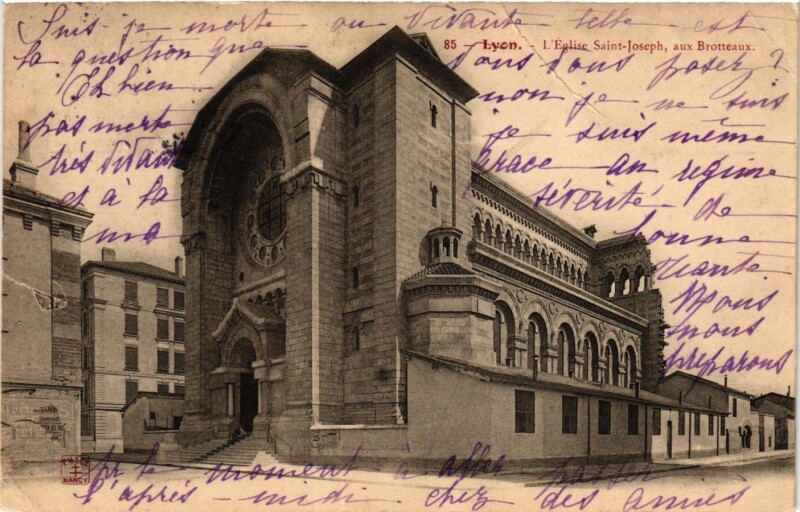 Suis-je morte ou vivante telle est
la question que
vous vous posez ?
85 — Lyon. - L'Église Saint-Joseph, aux Brotteaux.
Eh bien
non je ne suis
pas morte
je suis même
très vivante
grace au régime
et à la
sévérité de
ma
bonne
tante.
Nous
nous
préparons
pr le moment à aller passer
l'après-midi chez des amies
NANCY